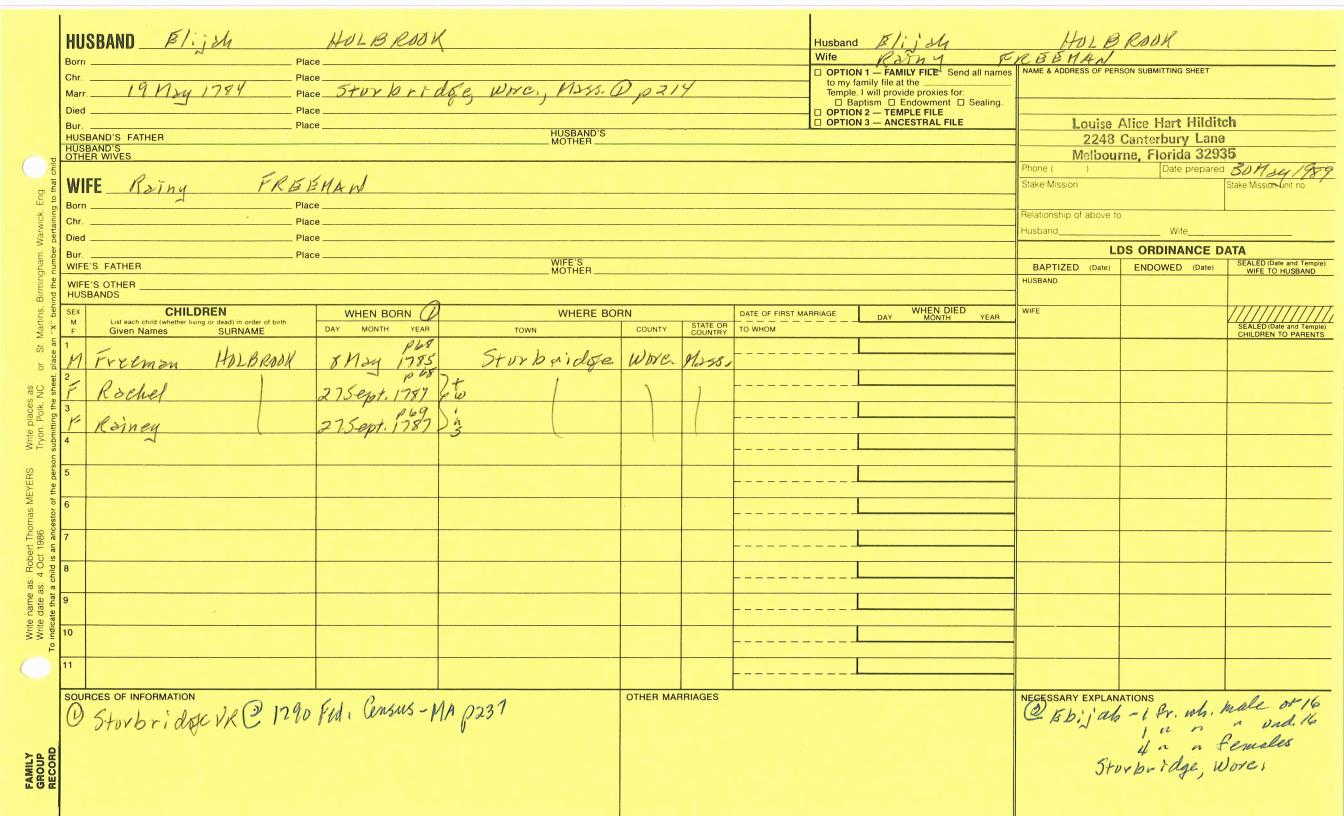 HUSBAND Elijah HOLBROOK
Born Place
Chr. Place
Marr. 19 May 1784 Place Sturbridge, Worc., Mass. ① p214
Died Place
Bur. Place
HUSBAND'S FATHER HUSBAND'S MOTHER
HUSBAND'S OTHER WIVES
Husband Elijah HOLBROOK
Wife Rainy FREEMAN
☐ OPTION 1 — FAMILY FILE Send all names
to my family file at the
Temple. I will provide proxies for:
☐ Baptism ☐ Endowment ☐ Sealing.
☐ OPTION 2 — TEMPLE FILE
☐ OPTION 3 — ANCESTRAL FILE
NAME & ADDRESS OF PERSON SUBMITTING SHEET
Louise Alice Hart Hilditch
2248 Canterbury Lane
Melbourne, Florida 32935
Phone ( ) Date prepared 30 May 1989
Stake Mission Stake Mission unit no
Relationship of above to
Husband Wife
WIFE Rainy FREEMAN
Born Place
Chr. Place
Died Place
Bur. Place
WIFE'S FATHER WIFE'S MOTHER
WIFE'S OTHER HUSBANDS
LDS ORDINANCE DATA
BAPTIZED (Date) ENDOWED (Date) SEALED (Date and Temple) WIFE TO HUSBAND
HUSBAND
WIFE
SEALED (Date and Temple) CHILDREN TO PARENTS
SEX M. F. CHILDREN WHEN BORN ① WHERE BORN DATE OF FIRST MARRIAGE WHEN DIED
List each child (whether living or dead) in order of birth
Given Names SURNAME DAY MONTH YEAR TOWN COUNTY STATE OR COUNTRY TO WHOM DAY MONTH YEAR
1 p68
M Freeman HOLBROOK 8 May 1785 Sturbridge Worc. Mass.
2 p68
F Rachel 27 Sept. 1787 tw
3 p69
F Rainey 27 Sept. 1787 ins
4
5
6
7
8
9
10
11
SOURCES OF INFORMATION
① Sturbridge VR ② 1790 Fed. Census-MA p237
OTHER MARRIAGES
NECESSARY EXPLANATIONS
② Ebijah - 1 Fr. wh. male ov 16
1 " " " und. 16
4 " " females
Sturbridge, Worc.
Write name as: Robert Thomas MEYERS Write places as Tryon, Polk, NC or St. Martins, Birmingham, Warwick, Eng.
Write date as: 4 Oct 1986
To indicate that a child is an ancestor of the person submitting the sheet, place an "X" behind the number pertaining to that child.
FAMILY
GROUP
RECORD